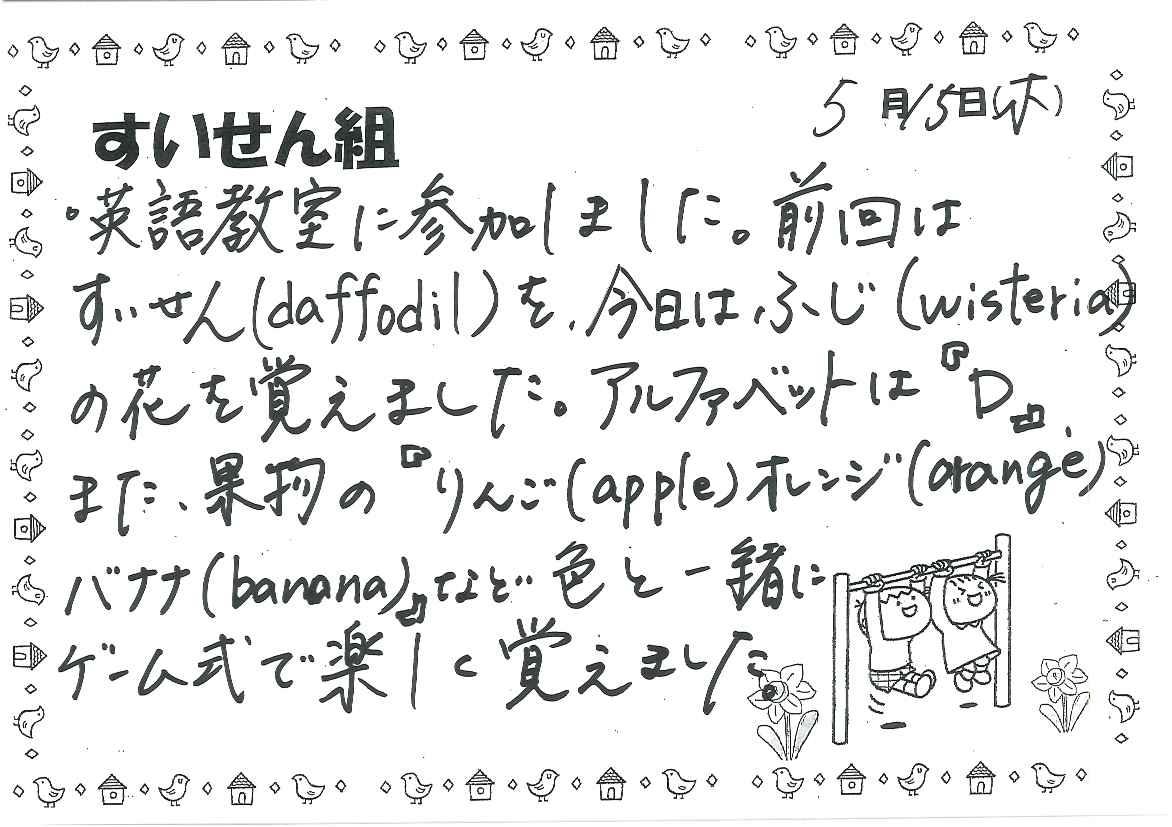 5月15日(木)
すいせん組
・英語教室に参加しました。前回は
すいせん(daffodil)を、今日は、ふじ(wisteria)
の花を覚えました。アルファベットは『D』、
また、果物の『りんご(apple)オレンジ(orange)
バナナ(banana)』など色と一緒に
ゲーム式で楽しく覚えました。